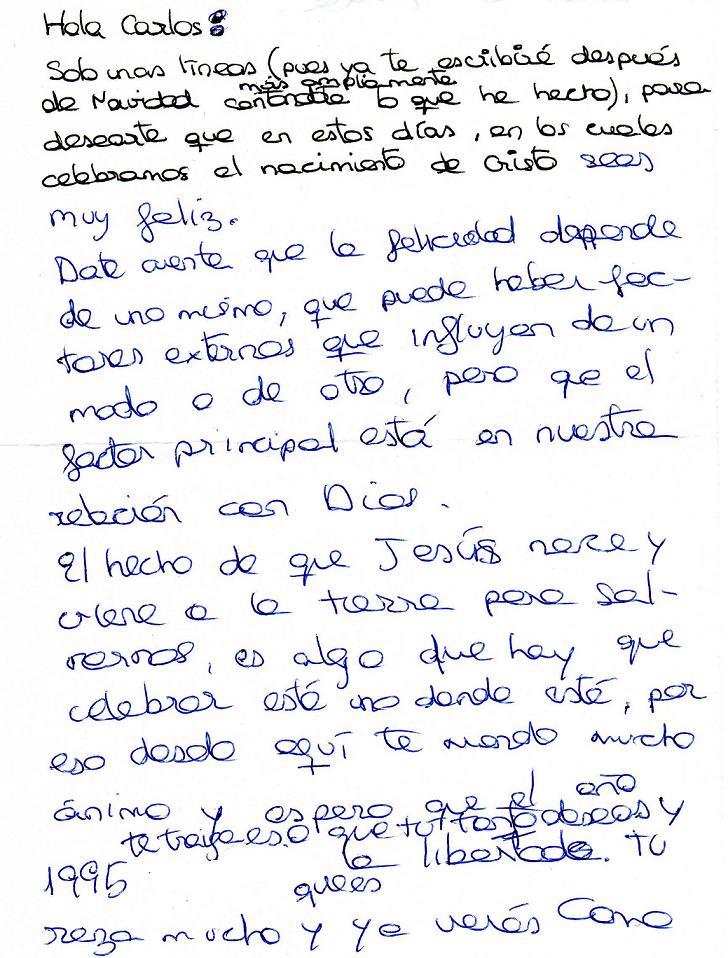 Hola Carlos:
Sob unas líneas (pues ya te escribiré después
más ampliamente
de Navidad contándote lo que he hecho), para
desearte que en estos días, en los cuales
celebramos el nacimiento de Cristo seas
muy feliz.
Date cuenta que la felicidad depende
de uno mismo, que puede haber fac-
tores externos que influyan de un
modo o de otro, pero que el
factor principal está en nuestra
relación con Dios.
El hecho de que Jesús nace y
viene a la tierra para sal-
varnos, es algo que hay que
celebrar esté uno donde esté, por
eso desde aquí te mando mucho
ánimo y espero que el año
1995 te traiga eso que tú tanto deseas y
que es la libertad. Tú
reza mucho y ya verás como